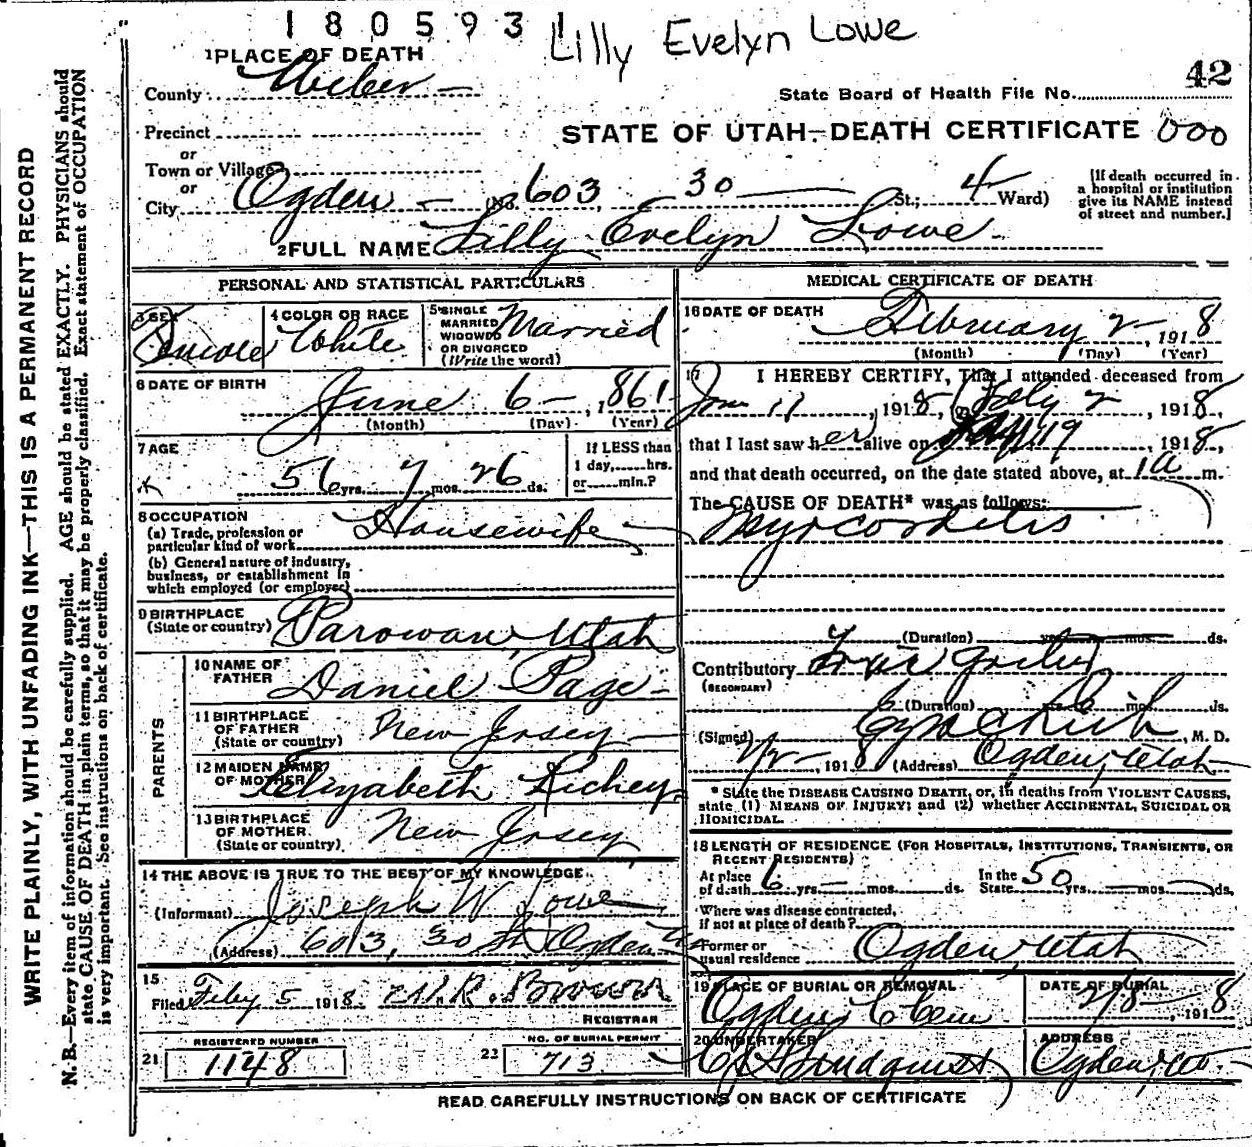 1805931 Lilly Evelyn Lowe
1 PLACE OF DEATH
County Weber
42
State Board of Health File No.
Precinct
STATE OF UTAH—DEATH CERTIFICATE 000
or
Town or Village
or
City Ogden (No. 603, 30 St.; 4 Ward)
[If death occurred in a hospital or institution give its NAME instead of street and number.]
2 FULL NAME Lilly Evelyn Lowe
WRITE PLAINLY, WITH UNFADING INK—THIS IS A PERMANENT RECORD
N. B.—Every item of information should be carefully supplied. AGE should be stated EXACTLY. PHYSICIANS should
state CAUSE OF DEATH in plain terms, so that it may be properly classified. Exact statement of OCCUPATION
is very important. See instructions on back of certificate.
PERSONAL AND STATISTICAL PARTICULARS
3 SEX Female
4 COLOR OR RACE White
5 SINGLE MARRIED WIDOWED OR DIVORCED (Write the word) Married
6 DATE OF BIRTH
June 6 , 1861
(Month) (Day) (Year)
7 AGE
56 yrs. 7 mos. 26 ds.
If LESS than 1 day, hrs. or min.?
8 OCCUPATION
(a) Trade, profession or particular kind of work Housewife
(b) General nature of industry, business, or establishment in which employed (or employer)
9 BIRTHPLACE
(State or country) Parowan, Utah
PARENTS
10 NAME OF FATHER Daniel Page
11 BIRTHPLACE OF FATHER (State or country) New Jersey
12 MAIDEN NAME OF MOTHER Elizabeth Richey
13 BIRTHPLACE OF MOTHER (State or country) New Jersey
14 THE ABOVE IS TRUE TO THE BEST OF MY KNOWLEDGE
(Informant) Joseph W Lowe
(Address) 603, 30 St Ogden
15
Filed Feby 5 1918
REGISTRAR
REGISTERED NUMBER
21 1148
NO. OF BURIAL PERMIT
22 713
MEDICAL CERTIFICATE OF DEATH
16 DATE OF DEATH
February 2 , 1918
(Month) (Day) (Year)
17 I HEREBY CERTIFY, That I attended deceased from
Jan 11 , 1918, to Feby 2 , 1918,
that I last saw her alive on 19 , 1918,
and that death occurred, on the date stated above, at 1 a m.
The CAUSE OF DEATH* was as follows:
Myocarditis
(Duration) yrs. mos. ds.
Contributory Toxic Goiter
(SECONDARY)
(Duration) yrs. 6 mos. ds.
(Signed) , M. D.
2/2 , 1918 (Address) Ogden, Utah
* State the DISEASE CAUSING DEATH, or, in deaths from VIOLENT CAUSES,
state (1) MEANS OF INJURY; and (2) whether ACCIDENTAL, SUICIDAL OR
HOMICIDAL.
18 LENGTH OF RESIDENCE (FOR HOSPITALS, INSTITUTIONS, TRANSIENTS, OR
RECENT RESIDENTS)
At place of death 6 yrs. mos. ds. In the State 50 yrs. mos. ds.
Where was disease contracted,
if not at place of death?
Former or
usual residence Ogden, Utah
19 PLACE OF BURIAL OR REMOVAL
Ogden Cem
DATE OF BURIAL
2/8 , 1918
20 UNDERTAKER
Lindquist
ADDRESS
Ogden, Ut
READ CAREFULLY INSTRUCTIONS ON BACK OF CERTIFICATE